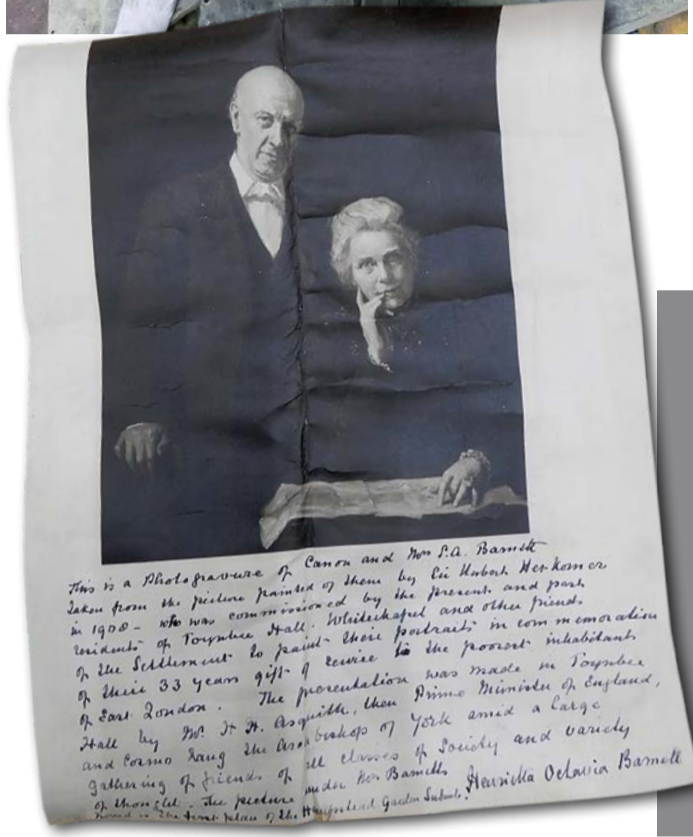 This is a Photogravure of Canon and Mrs S.A. Barnett
taken from the picture painted of them by Sir Hubert Herkomer
in 1908 – who was commissioned by the present and past
residents of Toynbee Hall. Whitechapel and other friends
of the Settlement to paint these portraits in commemoration
of their 33 years gift of service to the poorest inhabitants
of East London. The presentation was made in Toynbee
Hall by Mr. H. H. Asquith, then Prime Minister of England,
and Cosmo Lang the Archbishop of York amid a large
gathering of friends of all classes of Society and variety
of thought. The picture under Mrs Barnetts Henrietta Octavia Barnett
hand is the first plan of the Hampstead Garden Suburb.